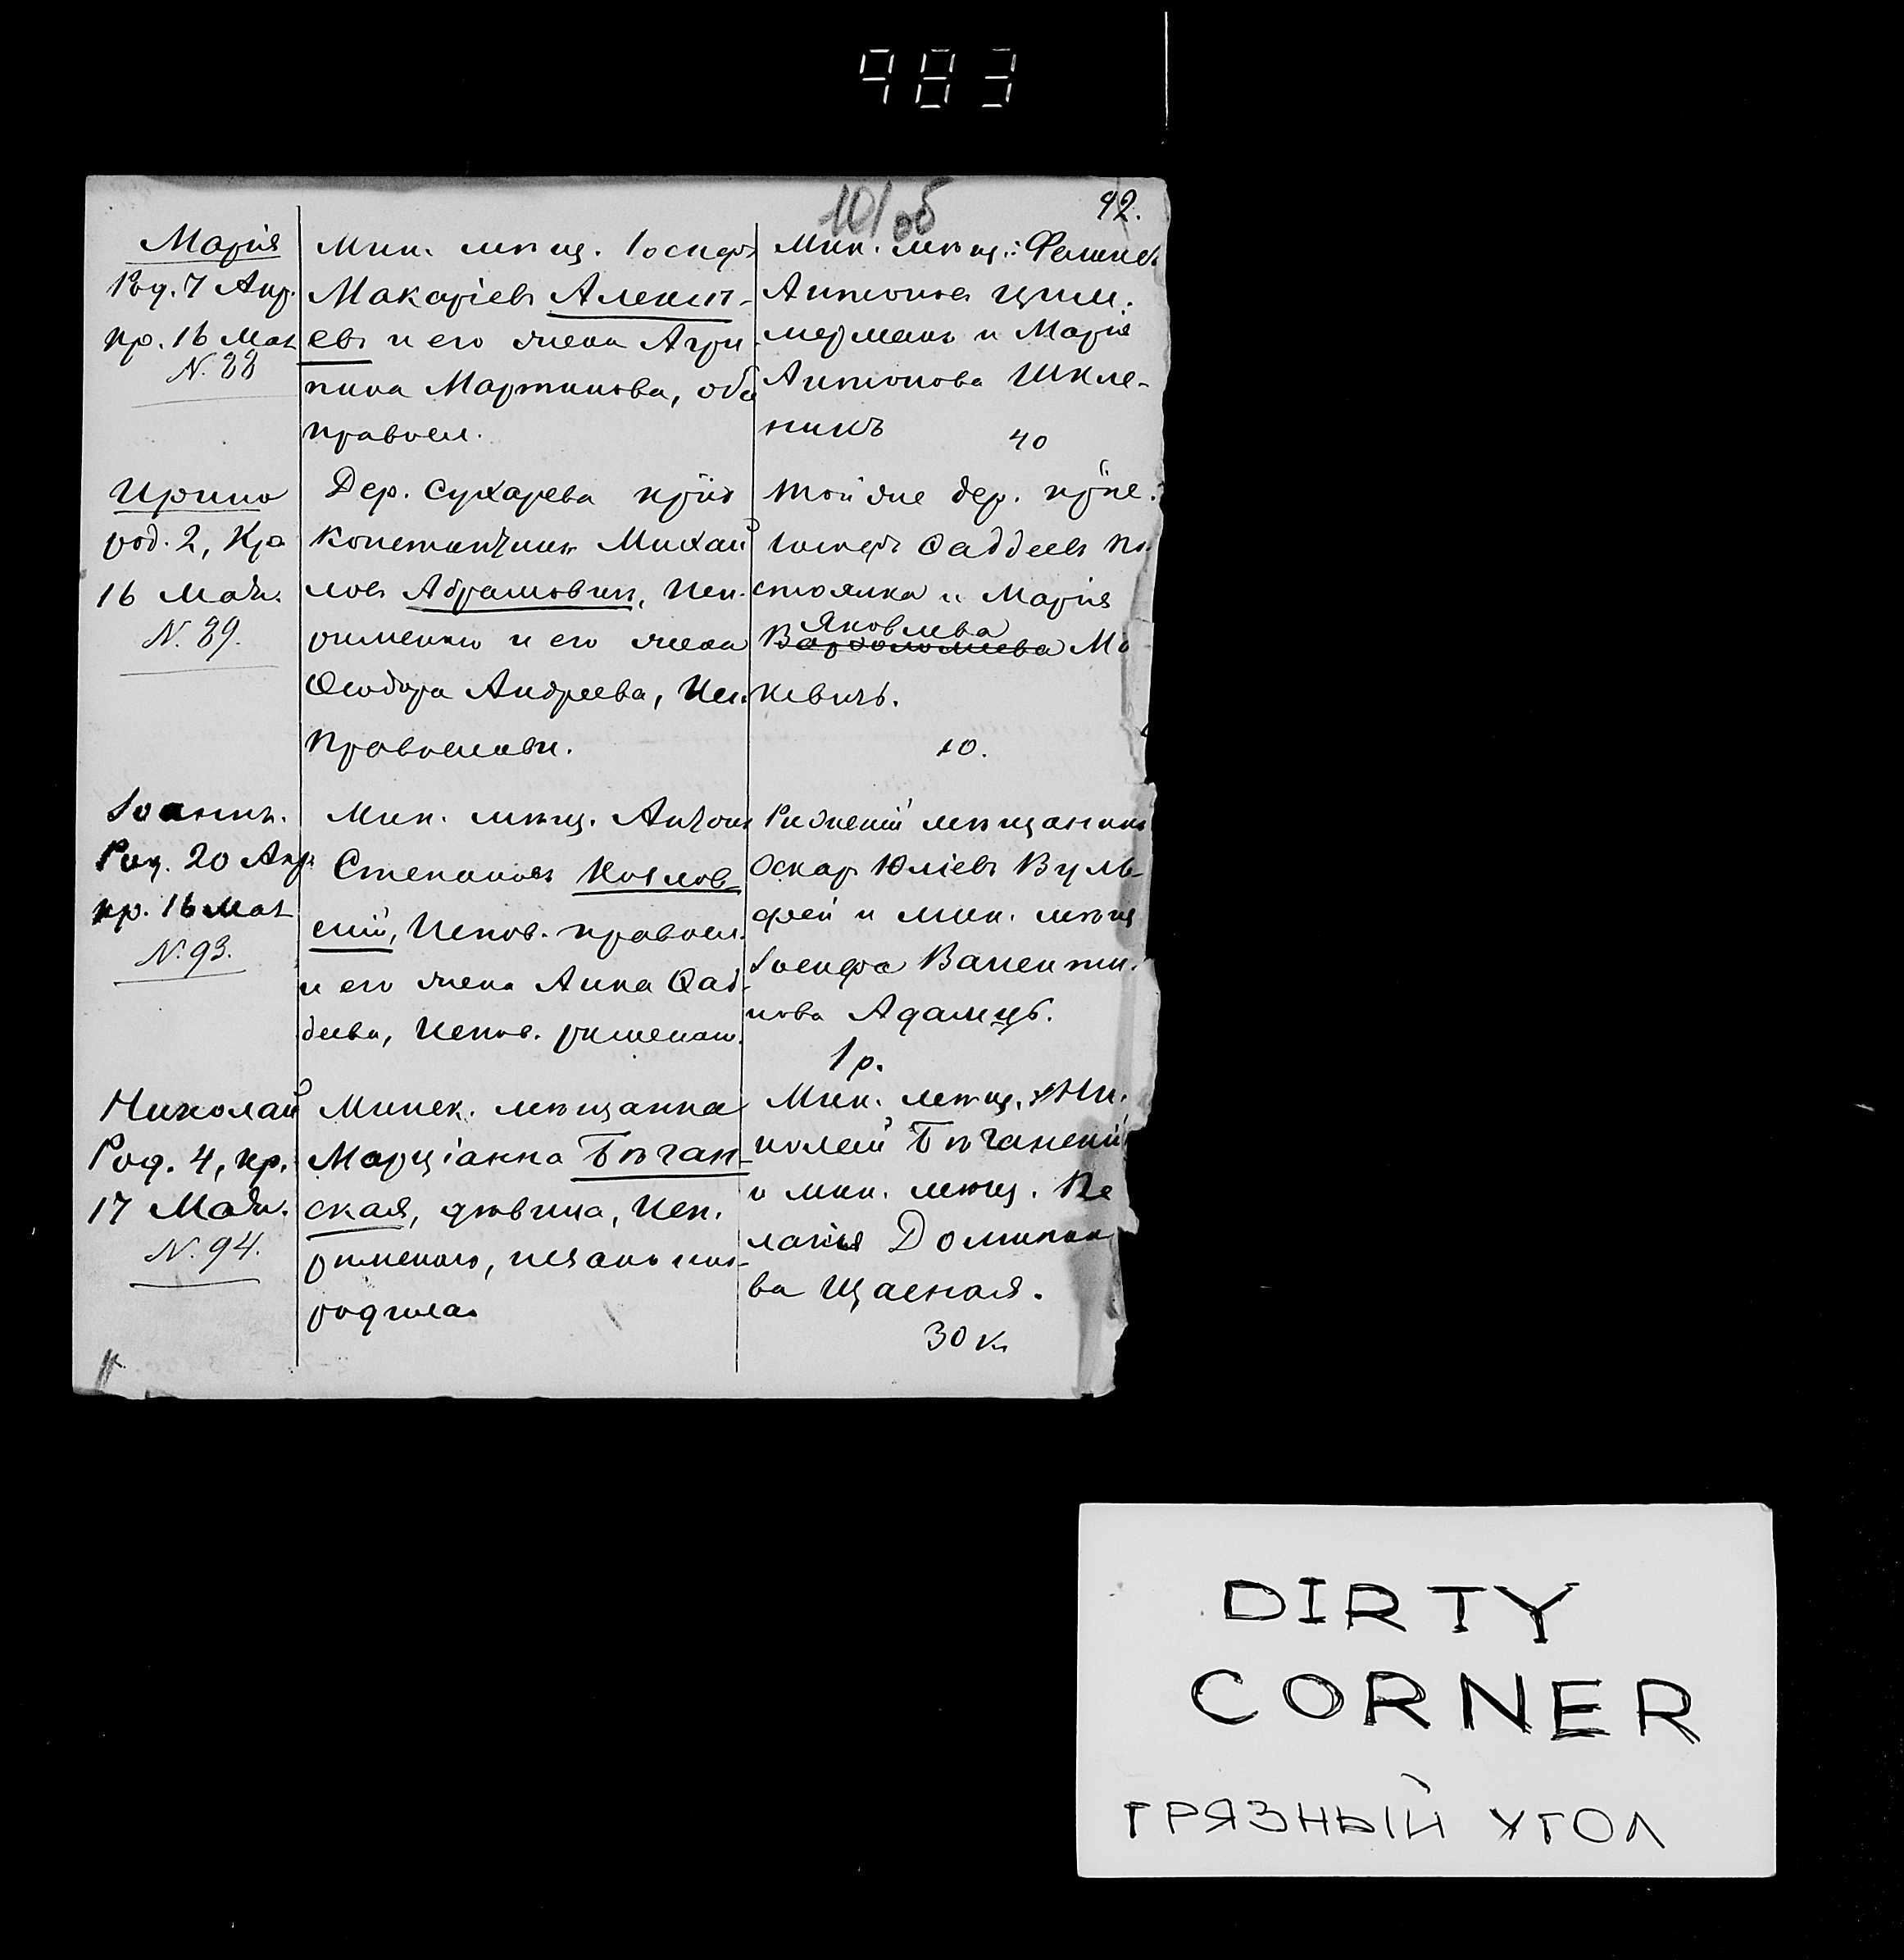 983
101об
92.
Марія
Род. 7 Апр.
кр. 16 Мая
N. 88
Мин. мѣщ. Іосифъ
Макаріевъ Алексѣ-
евъ и его жена Агри-
пина Мартинова, оба
правосл.
Мин. мѣщ.: Феликсъ
Антоновъ Цим-
мерманъ и Марія
Антонова Шкле-
никъ
40
Ирина
род. 2, Кр.
16 Мая.
N. 89.
Дер. Сухарева кр.
Константинъ Михай
ловъ Абрамовичъ, Исп.
римскаго и его жена
Ѳеодора Андреева, Исп.
Православн.
той же дер. кр.
Іосифъ Ѳаддеевъ По
стоялка и Марія
Яковлева
Варфоломеева Ма
кевичъ.
10.
Іоаннъ.
Род. 20 Апр.
кр. 16 Мая
N. 93.
Мин. мѣщ. Антонъ
Степановъ Козлов
скій, Испов. правосл.
и его жена Анна Ѳад-
деева, Испов. римскаго.
мѣщанинъ
Оскаръ Юліевъ Вуль
фей и мин. мѣщ
Іосифа Валенти-
нова Адамцъ.
1 р.
Николай
Род. 4, кр.
17 Мая.
N. 94.
Минск. мѣщанка
Марціанна Бѣган-
ская, дѣвица, Исп.
римскаго, незаконно
родила.
Мин. мѣщ. Ни-
колай Бѣганскій
и мин. мѣщ. Пе
лагія Доминико
ва Щасная.
30 к.
DIRTY
CORNER
ГРЯЗНЫЙ УГОЛ